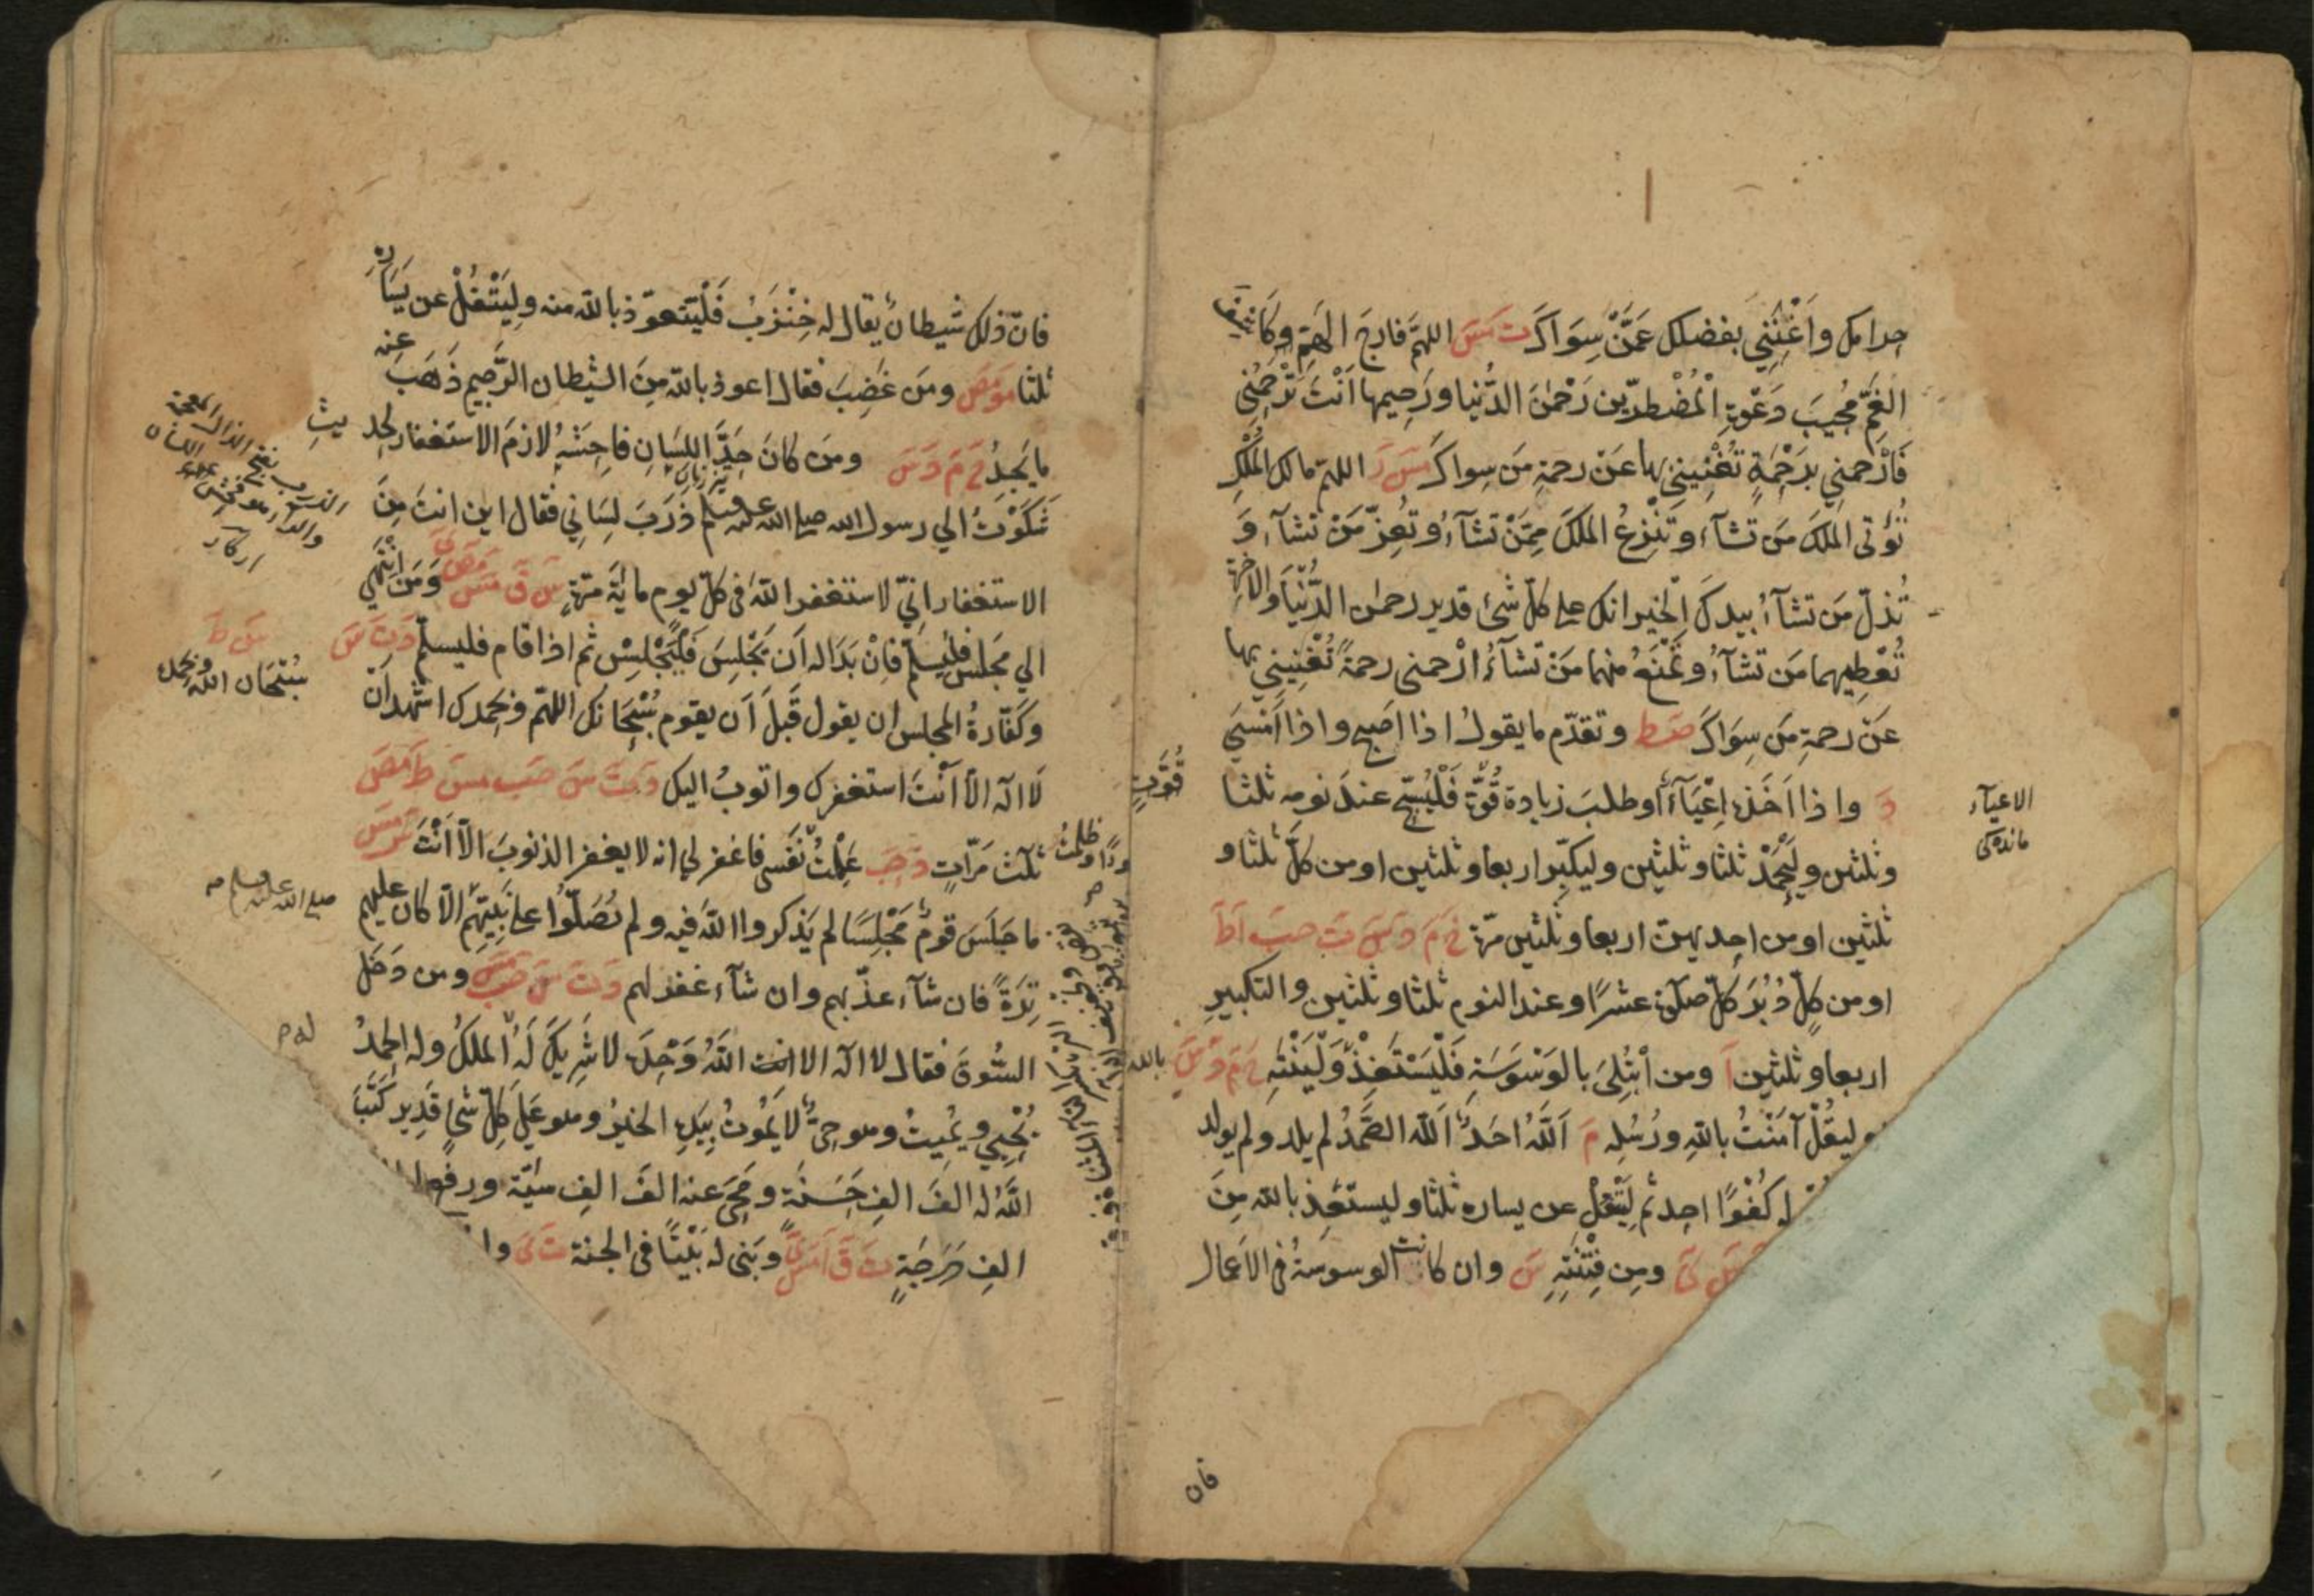 حرامك واَغْنِنِي بفضلك عَمَّنْ سِوَاكَ تَ مَسَ اللهمّ فارجَ الهَمِّ وكَاشِفَ
الغَمِّ مُجِيبَ دَعْوةِ الْمُضْطرّين رَحْمٰنَ الدُّنيا ورَحِيمها اَنْتَ تَرْحَمُنِي
فَارْحمنِي بِرَحْمَةٍ تُغْنِينِي بها عَنْ رحمةِ مَن سِواكَ مَسَ رَ اللهمّ مالك المُلْكِ
تُؤتى الملكَ مَن تشآء وتَنْزِعُ الملكَ مِمَّنْ تَشَآءُ وتُعِزّ مَنْ تشآء وَ
تُذلّ مَن تشآءُ بيدكَ الخيرُ انك على كلّ شئ قدير رحمٰن الدُّنْيَا والاٰخرة
تُعْطِيهما مَن تشآءُ وتَمْنَعُ منهما مَنْ تشآءُ ارْحمنى رحمةً تُغْنِينِي بها
عَنْ رحمةِ مَن سِوَاكَ صَط وتقدّم ما يقولُ اذا اصبح واذا اَمْسَي
دَ واذا اَخَذه اِعْيَآءٌ اوطلبَ زيادة قُوَّةٍ فَلْيُسَبِّح عندَ نومه ثلثا
وثلثين ولْيَحْمَدْ ثلثا وثلثين وليكبِّر اربعا وثلثين اومن كلَّ ثلثا و
ثلثين اومن احديهنّ اربعا وثلثين مَرّة خَ مَ دَ سَ تَ حبَ اَ طَ
اومن كلٍّ دُبُرَ كلّ صلٰوة عشرًا وعند النوم ثلثا وثلثين والتكبيرِ
اربعا وثلثين اَ ومن اُبْتُلِيَ بالوَسْوَسَةِ فَلْيَسْتَعِذْ وَلْيَنْتَهِ خَ مَ دَ سَ بالله
وليقُلْ آمَنْتُ باللهِ ورُسُلِهِ مَ اَللهُ اَحَدٌ اَللهُ الصَّمَدُ لم يلد ولم يولد
له كُفُوًا احد ثم لِيَتْفُلْ عن يساره ثلثا وليستَعِذ بالله مِنَ
ومِن فِتْنَتِهِ سَ وان كانت الوسوسةُ في الاَعمال
الاعيآء
ماندگی
قُوَّتٍ
فان
فانّ ذلك شيطانٌ يقال له خِنْزَبُ فَلْيَتَعوّذ بالله منه ولْيَتْفُلْ عن يَسَارِه
ثلثا مَوَمَصَ ومَن غَضِبَ فقال اعوذ بالله مِنَ الشيطان الرّجيم ذَهَبَ عنه
ما يَجِدُ خَ مَ دَ سَ ومَن كانَ حَدَّ اللِّسَانِ فاحِشَهُ لازمَ الاستغفار لحديثِ
شَكَوْتُ الي رسول الله صلى الله عليه وسلم ذَرَبَ لِسَانِي فقال اين انتَ مِنَ
الاستغفار انّي لاستغفر اللهَ فى كلّ يوم مائةَ مرّةٍ سَ قَ مَسَ مَصَ ىَ وَمَنِ انْتَهى
الي مَجلس فليُسلِّمْ فاِنْ بَدَا له اَن يَجْلِسَ فَلْيَجْلِسْ ثم اذا قام فليسلّم دَ تَ سَ
وكَفّارةُ المجلس ان يقول قَبْلَ اَن يقوم سُبْحَانك اللهمّ وبحمدك اشهد اَنْ
لَا اله الاّ اَنْتَ استغفرك واتوبُ اليك دَ تَ سَ حبَ مسَ طَ مَصَ
ثلٰث مَرّاتٍ دَ حِبَ عَمِلْتُ نَفْسى فاغفر لي انه لا يغفر الذنوبَ الاّ اَنْتَ سَ مَسَ
ما جَلَسَ قومٌ مَجْلِسًا لم يَذكروا اللهَ فيه ولم يُصَلّوا على نَبِيّهم الاّ كان عليهم
تِرَةً فان شآء عذّبهم وان شآء غفر لهم دَ تَ سَ حب مَسَ ومن دَخَل
السُّوقَ فقال لا اله الا الله وَحْدَه لا شَرِيكَ لَهُ الملكُ وله الحمدُ
يُحْيِي ويُمِيتُ وهو حيٌّ لا يَمُوتُ بِيَدِهِ الخيرُ وهو عَلى كلِّ شئٍ قَدِير كَتَبَ
اللهُ له الفَ الفِ حَسَنَة ومَحي عنه الفَ الفِ سيّئة ورفع
الفِ دَرَجَةٍ تَ قَ اَ مَسَ ىَ وبَنى له بَيْتًا فى الجنة تَ ىَ
سَ طَ
سُبْحَان الله وبحمده
صلى الله عليه وسلم